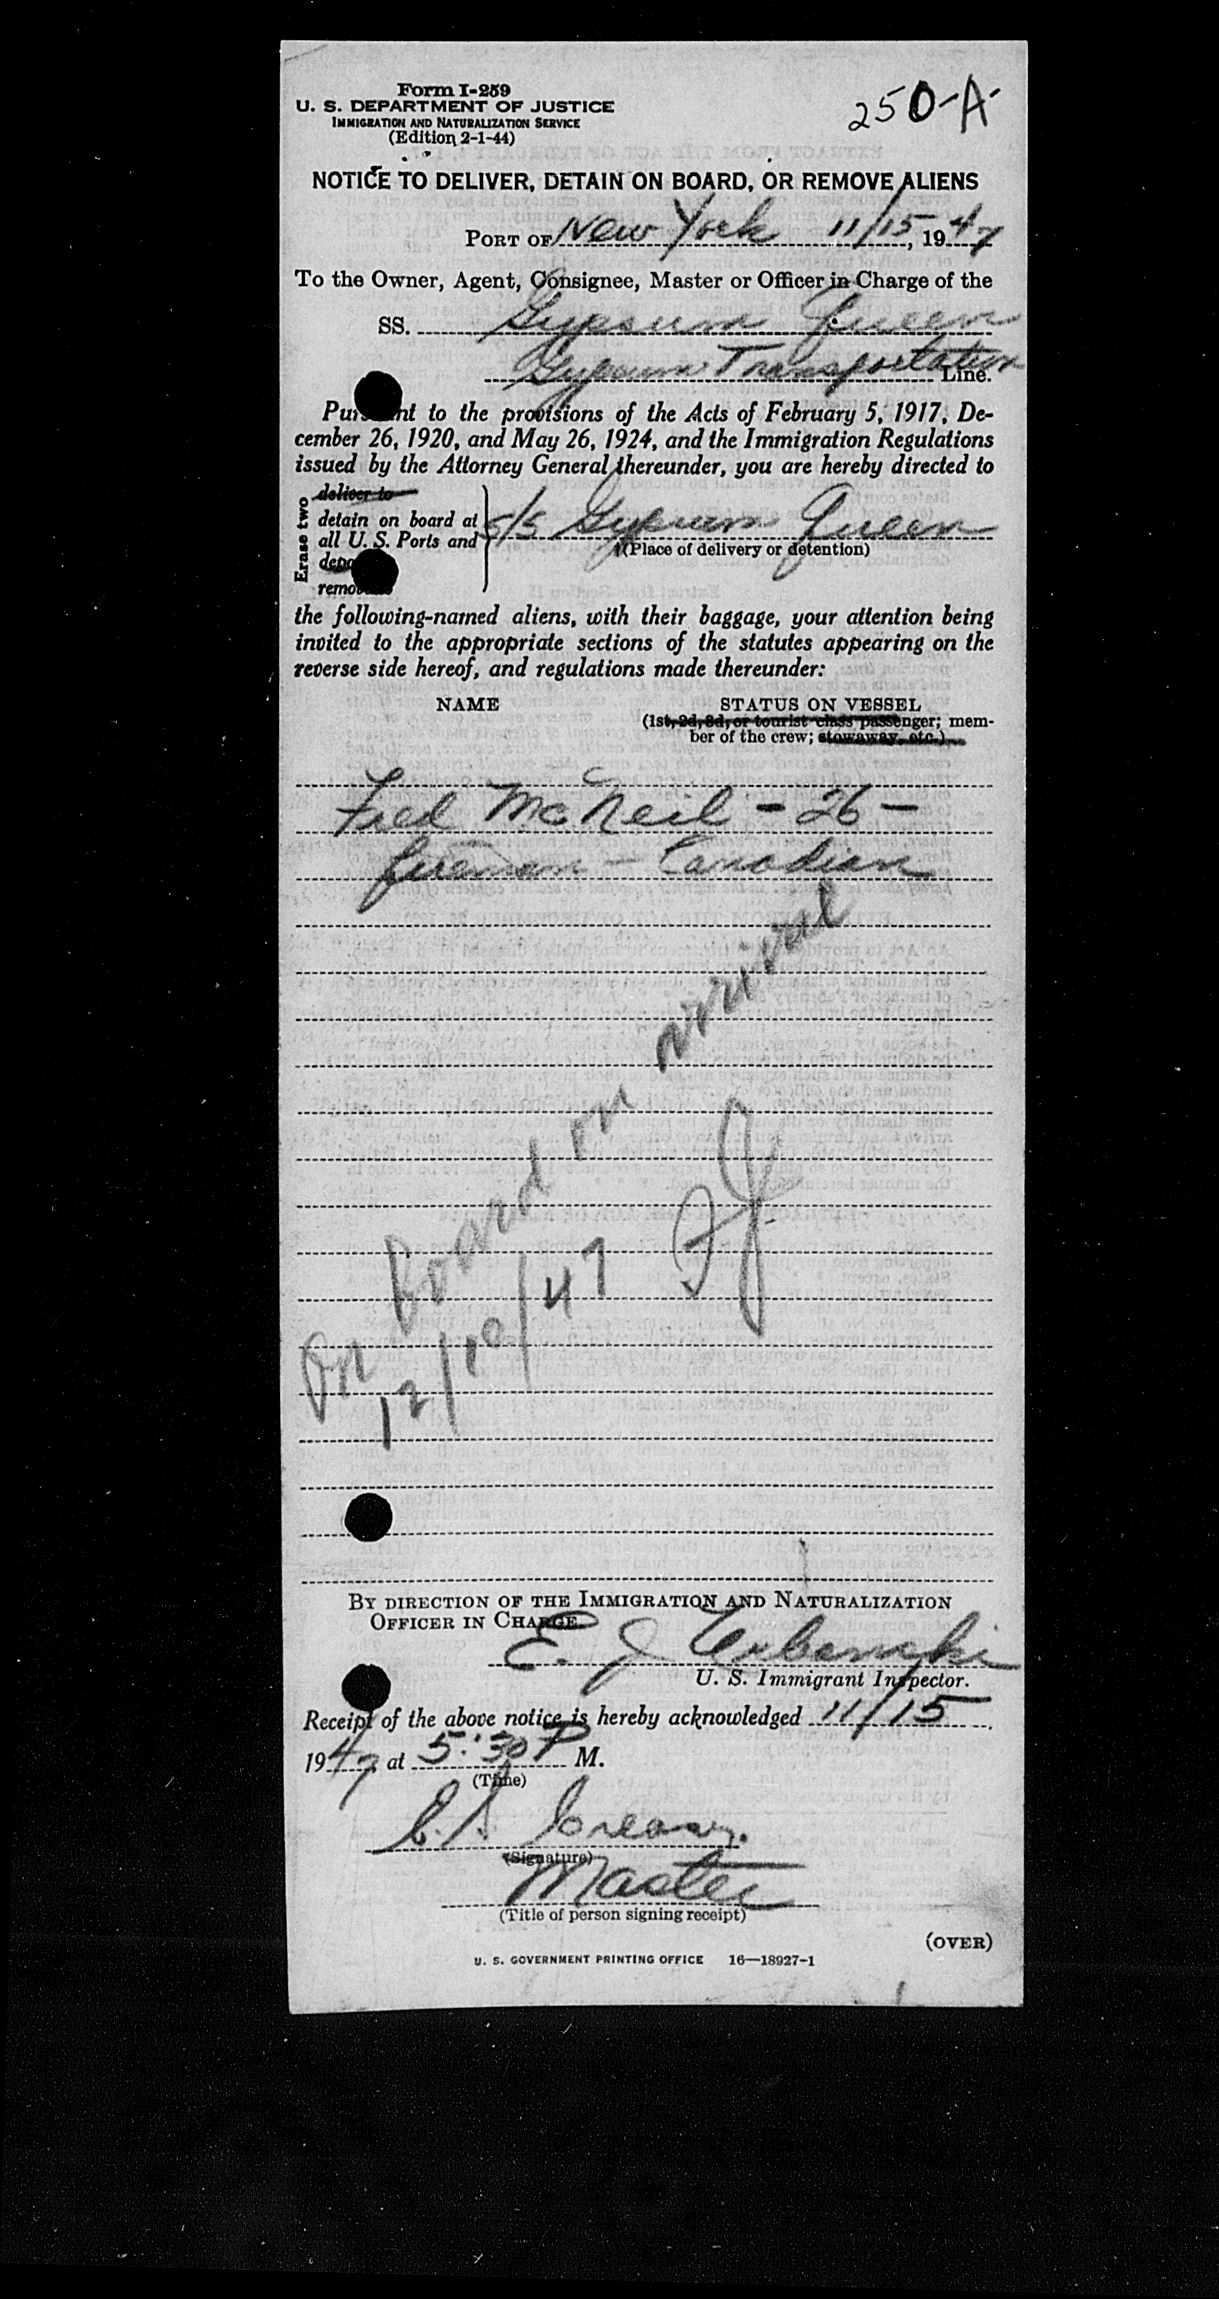 Form I-259
U. S. DEPARTMENT OF JUSTICE
IMMIGRATION AND NATURALIZATION SERVICE
(Edition 2-1-44)
250-A
NOTICE TO DELIVER, DETAIN ON BOARD, OR REMOVE ALIENS
PORT OF New York 11/15, 1947
To the Owner, Agent, Consignee, Master or Officer in Charge of the
SS. Gypsum Queen
Gypsum Transportation Line.
Pursuant to the provisions of the Acts of February 5, 1917, De-
cember 26, 1920, and May 26, 1924, and the Immigration Regulations
issued by the Attorney General thereunder, you are hereby directed to
Erase two
deliver to
detain on board at
all U. S. Ports and
S/S Gypsum Queen
(Place of delivery or detention)
the following-named aliens, with their baggage, your attention being
invited to the appropriate sections of the statutes appearing on the
reverse side hereof, and regulations made thereunder:
NAME
STATUS ON VESSEL
(1st, 2d, 3d, or tourist class passenger; mem-
ber of the crew; stowaway, etc.)
Fred McNeil - 26 -
fireman - Canadian
On board on arrival
12/10/47
BY DIRECTION OF THE IMMIGRATION AND NATURALIZATION
OFFICER IN CHARGE.
E. J. Urbanski
U. S. Immigrant Inspector.
Receipt of the above notice is hereby acknowledged 11/15
1947 at 5:30 P M.
(Time)
(Signature)
Master
(Title of person signing receipt)
(OVER)
U. S. GOVERNMENT PRINTING OFFICE 16—18927-1